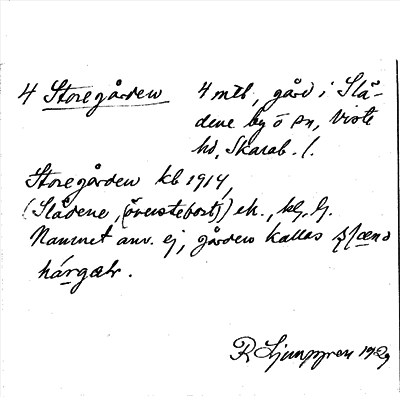 4 Storegården 4 mtl., gård i Slä-
dene by o sn, Viste
hd, Skarab. l.
Storegården kb 1914,
(Slädene, (överstebost)) ek., kg, lj.
Namnet anv. ej, gården kallas
hárgæḷr.
R Ljunggren 1929